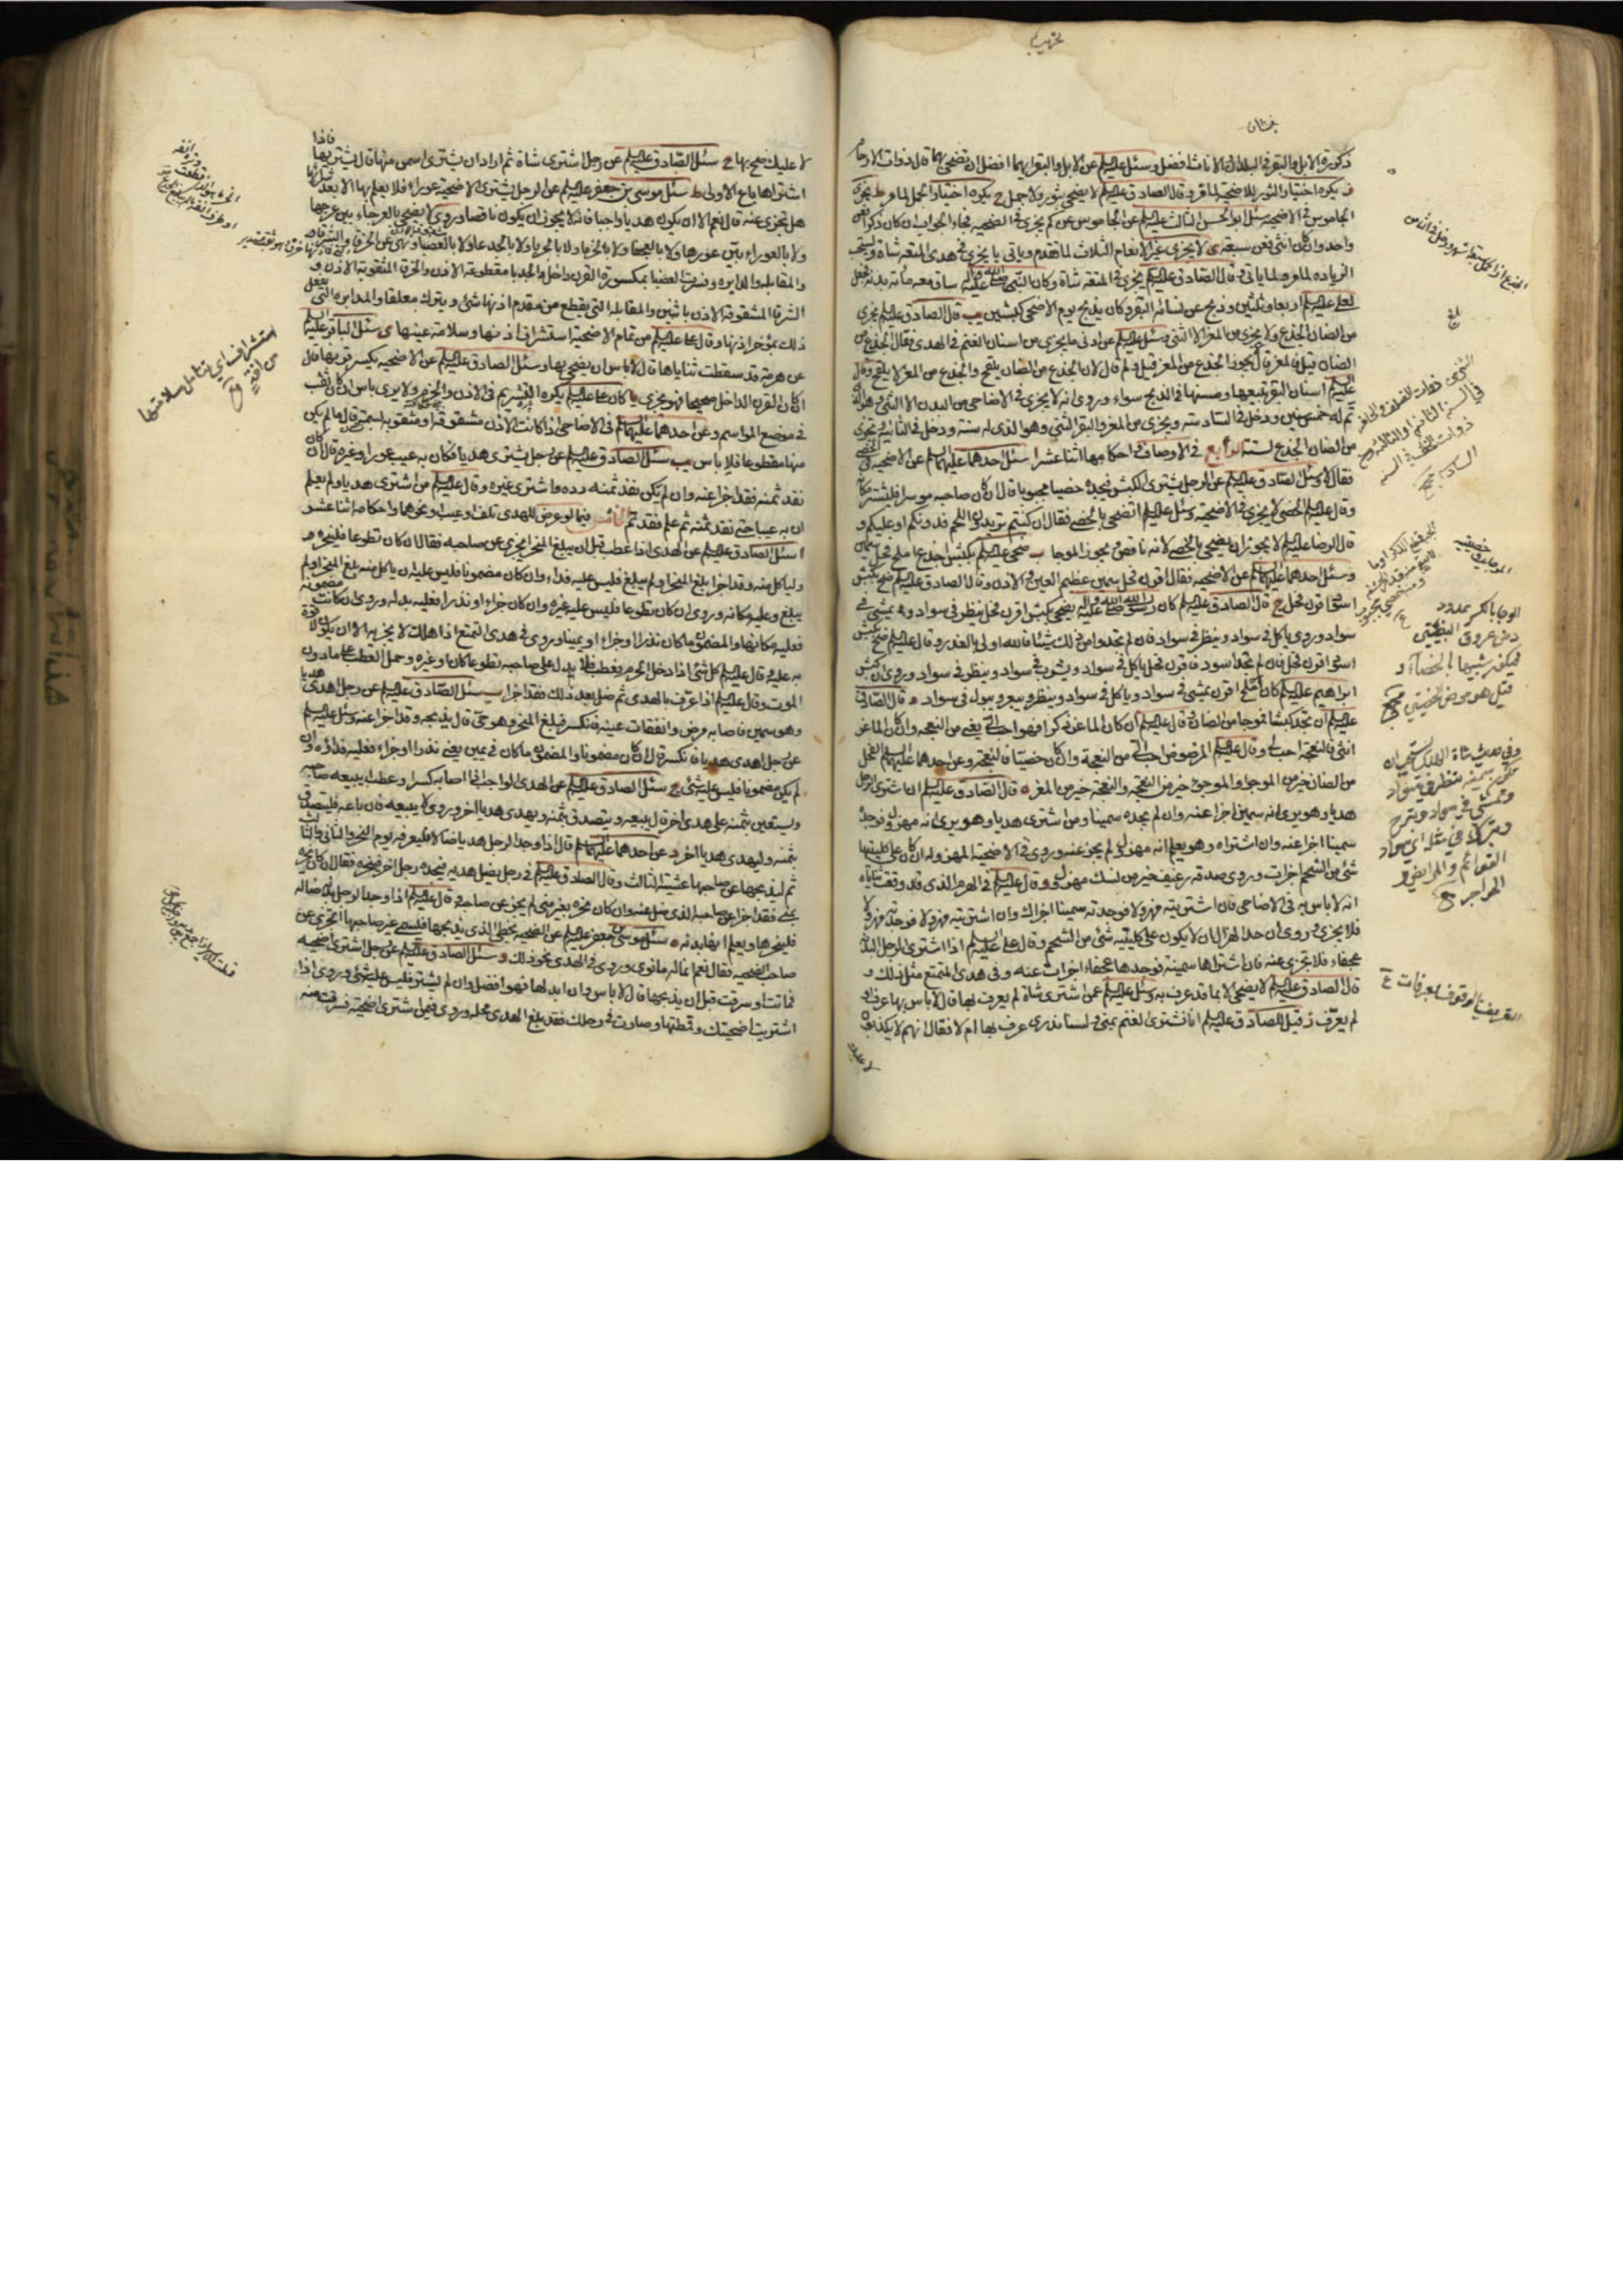 ذكورة الابل والبقر في البلدان الاناث افضل وسئل عليه السلم عن الابل والبقر ايهما افضل ان تضحي بها قال ذوات الارحام
يكره اختيار الثور للاضحية قال الصادق عليه السلم لا يضحى بثور ولا جمل يكره اختيار الجمل لما مر يجزي
الجاموس في الاضحية سئل ابو الحسن الثالث عليه السلم عن الجاموس عن كم يجزي في الضحية فجاء الجواب ان كان ذكرا فعن
واحد وان كان انثى فعن سبعة لا يجزي غير الانعام الثلاث لما تقدم وياتي يا يجزي في هدي المتعة شاة ويستحب
الزيادة لما مر ولما ياتي قال الصادق عليه السلم يجزي في المتعة شاة وكان النبي صلى الله عليه واله ساق معه مائة بدنة فجعل
لعلي عليه السلم اربعا وثلثين وذبح عن نسائه البقر وكان يذبح يوم الاضحى كبشين يب قال الصادق عليه السلم يجزي
من الضان الجذع ولا يجزي من المعز الا الثني وسئل عليه السلم عن ادنى ما يجزي من اسنان الغنم في الهدي فقال الجذع من
الضان قيل فالمعز قال لا يجوز الجذع من المعز قيل ولم قال لان الجذع من الضان يلقح والجذع من المعز لا يلقح وقال
عليه السلم اسنان البقر تبيعها ومسنها في الذبح سواء وروي انه لا يجزي في الاضاحي من البدن الا الثني وهو الذي
تم له خمس سنين ودخل في السادسة ويجزي من المعز والبقر الثني وهو الذي له سنة ودخل في الثانية ويجزي
من الضان الجذع لسنة الرابع في الاوصاف واحكامها اثنا عشر ا سئل احدهما عليهما السلم عن الاضحية
فقال لا وسئل الصادق عليه السلم عن الرجل يشتري الكبش فيجده خصيا مجبوبا قال ان كان صاحبه موسرا فليشتر مكانه
وقال عليه السلم الخصي لا يجزي في الاضحية وسئل عليه السلم اتضحي بالخصي فقال ان كنتم تريدون اللحم فدونكم او عليكم و
قال الرضا عليه السلم لا يجوز ان يضحى بالخصي لانه ناقص ويجوز الموجا ب ضحى عليه السلم بكبش اجذع املح فحل سمين
وسئل احدهما عليهما السلم عن الاضحية فقال اقرن فحل سمين عظيم العين والاذن وقال الصادق عليه السلم ضح بكبش
اسود اقرن فحل ج قال الصادق عليه السلم كان رسول الله صلى الله عليه واله يضحي بكبش اقرن فحل ينظر في سواد ويمشي في
سواد وروي ياكل في سواد وينظر في سواد فان لم تجدوا من ذلك شيئا فالله اولى بالعذر وقال عليه السلم ضح بكبش
اسود اقرن فحل فان لم تجد اسود فاقرن فحل ياكل في سواد ويشرب في سواد وينظر في سواد وروي ان كبش
ابراهيم عليه السلم كان املح اقرن يمشي في سواد وياكل في سواد وينظر ويبعر ويبول في سواد د قال الصادق
عليه السلم ان لم تجد كبشا فموجا من الضان قال عليه السلم ان كان الماعز ذكرا فهو احب الي يعني من النعجة وان كان الماعز
انثى فالنعجة احب الي وقال عليه السلم المرضوض احب الي من النعجة وان كان خصيا فالنعجة وعن احدهما عليهما السلم الفحل
من الضان خير من الموجو والموجو خير من النعجة والنعجة خير من المعز ه قال الصادق عليه السلم ان اشترى الرجل
هديا وهو يرى انه سمين اجزا عنه وان لم يجده سمينا ومن اشترى هديا وهو يرى انه مهزول فوجده
سمينا اجزا عنه وان اشتراه وهو يعلم انه مهزول لم يجز عنه وروي في الاضحية المهزولة ان كان على كليتيها
شيء من الشحم اجزات وروي صدقة رغيف خير من نسك مهزول و قال عليه السلم في الهرم الذي قد وقعت ثناياه
انه لا باس به في الاضاحي فان اشتريته مهزولا فوجدته سمينا اجزاك وان اشتريته مهزولا فوجدته مهزولا
فلا يجزي وروي ان حد الهزال ان لا يكون على كليتيه شيء من الشحم وقال علي عليه السلم اذا اشترى الرجل البدنة
عجفاء فلا تجزي عنه فان اشتراها سمينة فوجدها عجفاء اجزات عنه وفي هدي المتمتع مثل ذلك و
قال الصادق عليه السلم لا يضحى الا بما قد عرف به وسئل عليه السلم عمن اشترى شاة لم يعرف بها قال لا باس بها عرف او
لم يعرف ز قيل للصادق عليه السلم انا نشتري الغنم بمنى ولسنا ندري عرف بها ام لا فقال انهم لا يكذبون
لا عليك
الوجا بالكسر ممدود
رض عروق البيضتين
فيكون شبيها بالخصاء و
قيل هو رض الخصيتين
القوائم والمرابض و
المحاجر
لا عليك ضح بها ح سئل الصادق عليه السلم عن رجل اشترى شاة ثم اراد ان يشتري اسمن منها قال يشتريها فاذا
اشتراها باع الاولى ط سئل موسى بن جعفر عليه السلم عن الرجل يشتري الاضحية عوراء فلا يعلم بها الا بعد شرائها
هل تجزي عنه قال نعم الا ان يكون هديا واجبا فانه لا يجوز ان يكون ناقصا وروي لا يضحى بالعرجاء بين عرجها
ولا بالعوراء بين عورها ولا بالعجفاء ولا بالخرماء ولا بالجرباء ولا بالجدعاء ولا بالعضباء ونهي عن الخرقاء والشرقاء
والمقابلة والمدابرة وفسرت العضبا بمكسورة القرن الداخل والجدعا بمقطوعة الاذن والخرقا المثقوبة الاذن و
الشرقا المشقوقة الاذن باثنين والمقابلة التي يقطع من مقدم اذنها شيء ويترك معلقا والمدابرة التي يفعل
ذلك بمؤخر اذنها وقال علي عليه السلم من تمام الاضحية استشراف اذنها وسلامة عينها ى سئل الباقر عليه السلم
عن هرمة قد سقطت ثناياها قال لا باس ان يضحى بها وسئل الصادق عليه السلم عن الاضحية يكسر قرنها قال
اذا كان القرن الداخل صحيحا فهو يجزي يا كان علي عليه السلم يكره التشريم في الاذن والخرم ولا يرى باسا ان كان ثقب
في موضع المواسم وعن احدهما عليهما السلم في الاضاحي اذا كانت الاذن مشقوقة او مثقوبة بسمة قال ما لم يكن
منها مقطوعا فلا باس يب سئل الصادق عليه السلم عن رجل يشتري هديا فكان به عيب عور او غيره قال ان كان
نقد ثمنه فقد اجزا عنه وان لم يكن نقد ثمنه رده واشترى غيره وقال عليه السلم من اشترى هديا ولم يعلم
ان به عيبا حتى نقد ثمنه ثم علم فقد تم الخامس فيما لو عرض للهدي تلف او عيب او نحوهما واحكامه اثنا عشر
ا سئل الصادق عليه السلم عن الهدي اذا عطب قبل ان يبلغ المنحر ايجزي عن صاحبه فقال ان كان تطوعا فلينحره و
لياكل منه وقد اجزا بلغ المنحر او لم يبلغ فليس عليه فداء وان كان مضمونا فليس عليه ان ياكل منه بلغ المنحر او لم
يبلغ وعليه مكانه وروي ان كان تطوعا فليس عليه غيره وان كان جزاء او نذرا فعليه بدله وروي ان كانت مضمونة
فعليه مكانها والمضمون ما كان نذرا او جزاء او يمينا وروي في هدي التمتع اذا هلك لا يجزيه الا ان يكون لا قوة
به عليه وقال عليه السلم كل شيء اذا دخل الحرم فعطب فلا بدل على صاحبه تطوعا كان او غيره وحمل العطب على ما دون
الموت وقال عليه السلم اذا عرف بالهدي ثم ضل بعد ذلك فقد اجزا ب سئل الصادق عليه السلم عن رجل اهدى هديا
وهو سمين فاصابه مرض وانفقات عينه فانكسر فبلغ المنحر وهو حي قال يذبحه وقد اجزا عنه وسئل عليه السلم
عن رجل اهدى هديا فانكسر قال ان كان مضمونا والمضمون ما كان في يمين يعني نذرا او جزاء فعليه فداؤه وان
لم يكن مضمونا فليس عليه شيء ج سئل الصادق عليه السلم عن الهدي الواجب اذا اصابه كسر او عطب ايبيعه صاحبه
ويستعين بثمنه على هدي اخر قال يبيعه ويتصدق بثمنه ويهدي هديا اخر وروي لا يبيعه فان باعه فليتصدق
بثمنه وليهد هديا اخر د عن احدهما عليهما السلم قال اذا وجد الرجل هديا ضالا فليعرفه يوم النحر والثاني والثالث
ثم ليذبحها عن صاحبها عشية الثالث وقال الصادق عليه السلم في رجل يضل هديه فيجده رجل اخر فينحره فقال ان كان نحره
بمنى فقد اجزا عن صاحبه الذي ضل عنه وان كان نحره بغير منى لم يجز عن صاحبه وقال عليه السلم اذا وجد الرجل بدنة ضالة
فلينحرها ويعلم انها بدنة ه سئل موسى بن جعفر عليه السلم عن الضحية يخطئ الذي يذبحها فيسمي غير صاحبها اتجزي عن
صاحب الضحية فقال نعم انما له ما نوى وروي في الهدي نحو ذلك و سئل الصادق عليه السلم عن رجل اشترى اضحية
فماتت او سرقت قبل ان يذبحها قال لا باس وان ابدلها فهو افضل وان لم يشتر فليس عليه شيء وروي اذا
اشتريت اضحيتك وقمطتها وصارت في رحلك فقد بلغ الهدي محله وروي فيمن اشترى اضحية فسرقت منه
استشراف اي يتامل سلامتها
من افة